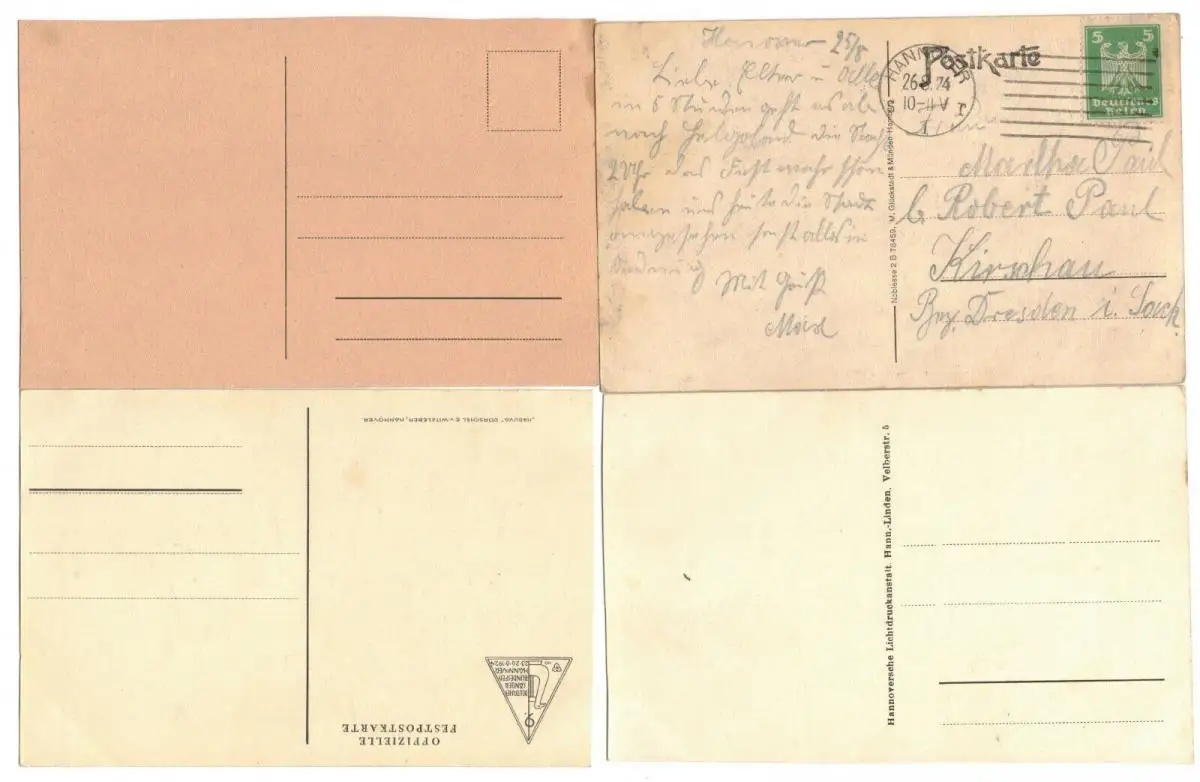 Hannover 25/8
Liebe Eltern u Alle
in 5 Stunden geht es ab
nach Helgoland die
2 Uhr das Fest war schön
haben uns heute die Stadt
angesehen sonst alles in
Ordnung
Mit Gruß
Postkarte
HANNOVER
26.8.24
10-11V
1
5 5
Deutsches
Reich
Paul
b Robert Paul
Kirschau
Bez. Dresden i. Sach
Noblesse 2 B 78459, M. Glückstadt & Münden Hamburg
HANNOVER.
OFFIZIELLE
FESTPOSTKARTE
9
DEUTSCHER
SÄNGER
BUNDESFEST
HANNOVER
23-26-8-1924
Hannoversche Lichtdruckanstalt. Hann.-Linden, Velberstr. 5